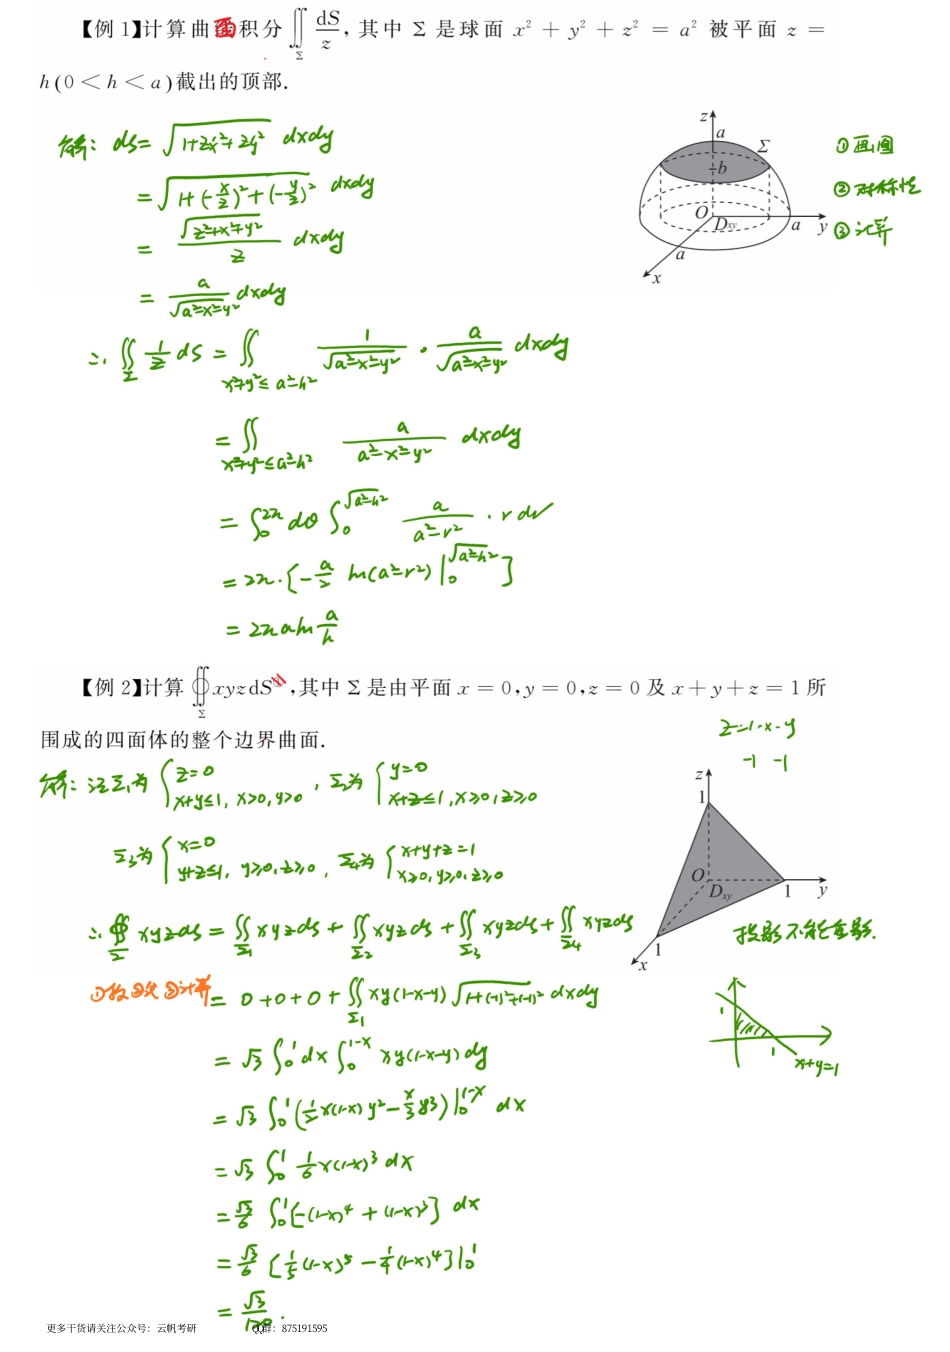 【例 1】计算曲面积分 ∬_Σ dS/z, 其中 Σ 是球面 x² + y² + z² = a² 被平面 z =
h(0 < h < a)截出的顶部.
解: dS = √(1+Zx²+Zy²) dxdy
= √(1+(-x/z)²+(-y/z)²) dxdy
= √(z²+x²+y²)/z dxdy
= a/√(a²-x²-y²) dxdy
z a Σ b O Dxy a y a x
①画图
②对称性
③计算
∴ ∬_Σ 1/z dS = ∬_{x²+y²≤a²-h²} 1/√(a²-x²-y²) · a/√(a²-x²-y²) dxdy
= ∬_{x²+y²≤a²-h²} a/(a²-x²-y²) dxdy
= ∫₀^{2π} dθ ∫₀^{√(a²-h²)} a/(a²-r²) · r dr
= 2π·[-a/2 ln(a²-r²)|₀^{√(a²-h²)}]
= 2πa ln a/h
【例 2】计算 ∯_Σ xyz dS ,其中 Σ 是由平面 x = 0,y = 0,z = 0 及 x + y + z = 1 所
围成的四面体的整个边界曲面.
z=1-x-y
-1 -1
解: 记Σ₁为 { z=0 x+y≤1, x>0, y>0 , Σ₂为 { y=0 x+z≤1, x≥0, z≥0
Σ₃为 { x=0 y+z≤1, y≥0, z≥0 , Σ₄为 { x+y+z=1 x≥0, y≥0, z≥0
z 1 O Dxy 1 y 1 x
∴ ∯_Σ xyzdS = ∬_{Σ₁} xyzdS + ∬_{Σ₂} xyzdS + ∬_{Σ₃} xyzdS + ∬_{Σ₄} xyzdS
投影不能重影.
= 0+0+0+ ∬_{Σ₁} xy(1-x-y) √(1+(-1)²+(-1)²) dxdy
1 1 x+y=1
= √3 ∫₀¹ dx ∫₀^{1-x} xy(1-x-y) dy
= √3 ∫₀¹ (1/2 x(1-x) y² - x/3 y³)|₀^{1-x} dx
= √3 ∫₀¹ 1/6 x(1-x)³ dx
= √3/6 ∫₀¹ [-(1-x)⁴ + (1-x)³] dx
= √3/6 [1/5 (1-x)⁵ - 1/4 (1-x)⁴]|₀¹
= √3/120 .
更多干货请关注公众号：云帆考研 QQ群：875191595